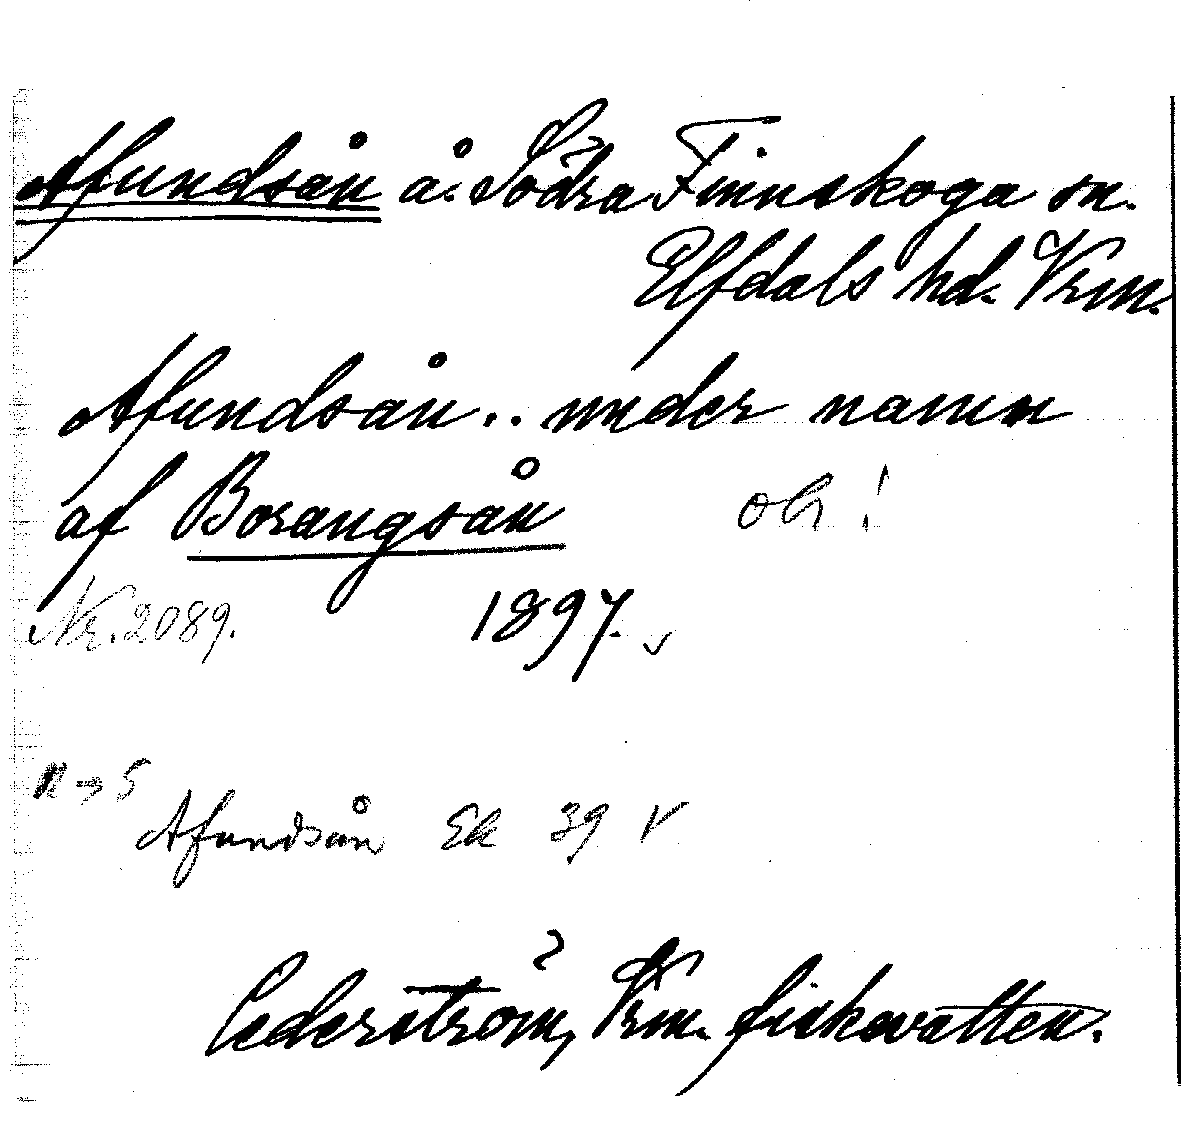 Afundsån å. Södra Finnskoga sn.
Elfdals hd. Vrm.
Afundsån.. under namn
af Borangsån obs!
Nr. 2089. 1897.
R → S
Afundsån Ek 39 V
Cederström, Vrm. fiskevatten.